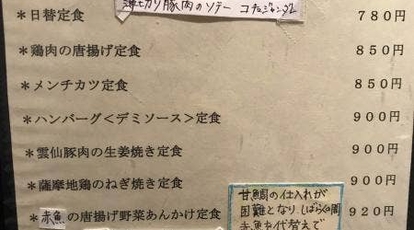 薄切り豚肉のソテー コチュジャンダレ
*日替定食 780円
*鶏肉の唐揚げ定食 850円
*メンチカツ定食 850円
*ハンバーグ<デミソース>定食 900円
*雲仙豚肉の生姜焼き定食 900円
*薩摩地鶏のねぎ焼き定食 900円
*赤魚の唐揚げ野菜あんかけ定食 920円
甘鯛の仕入れが
困難となり、しばらくの間
赤魚を代替えで